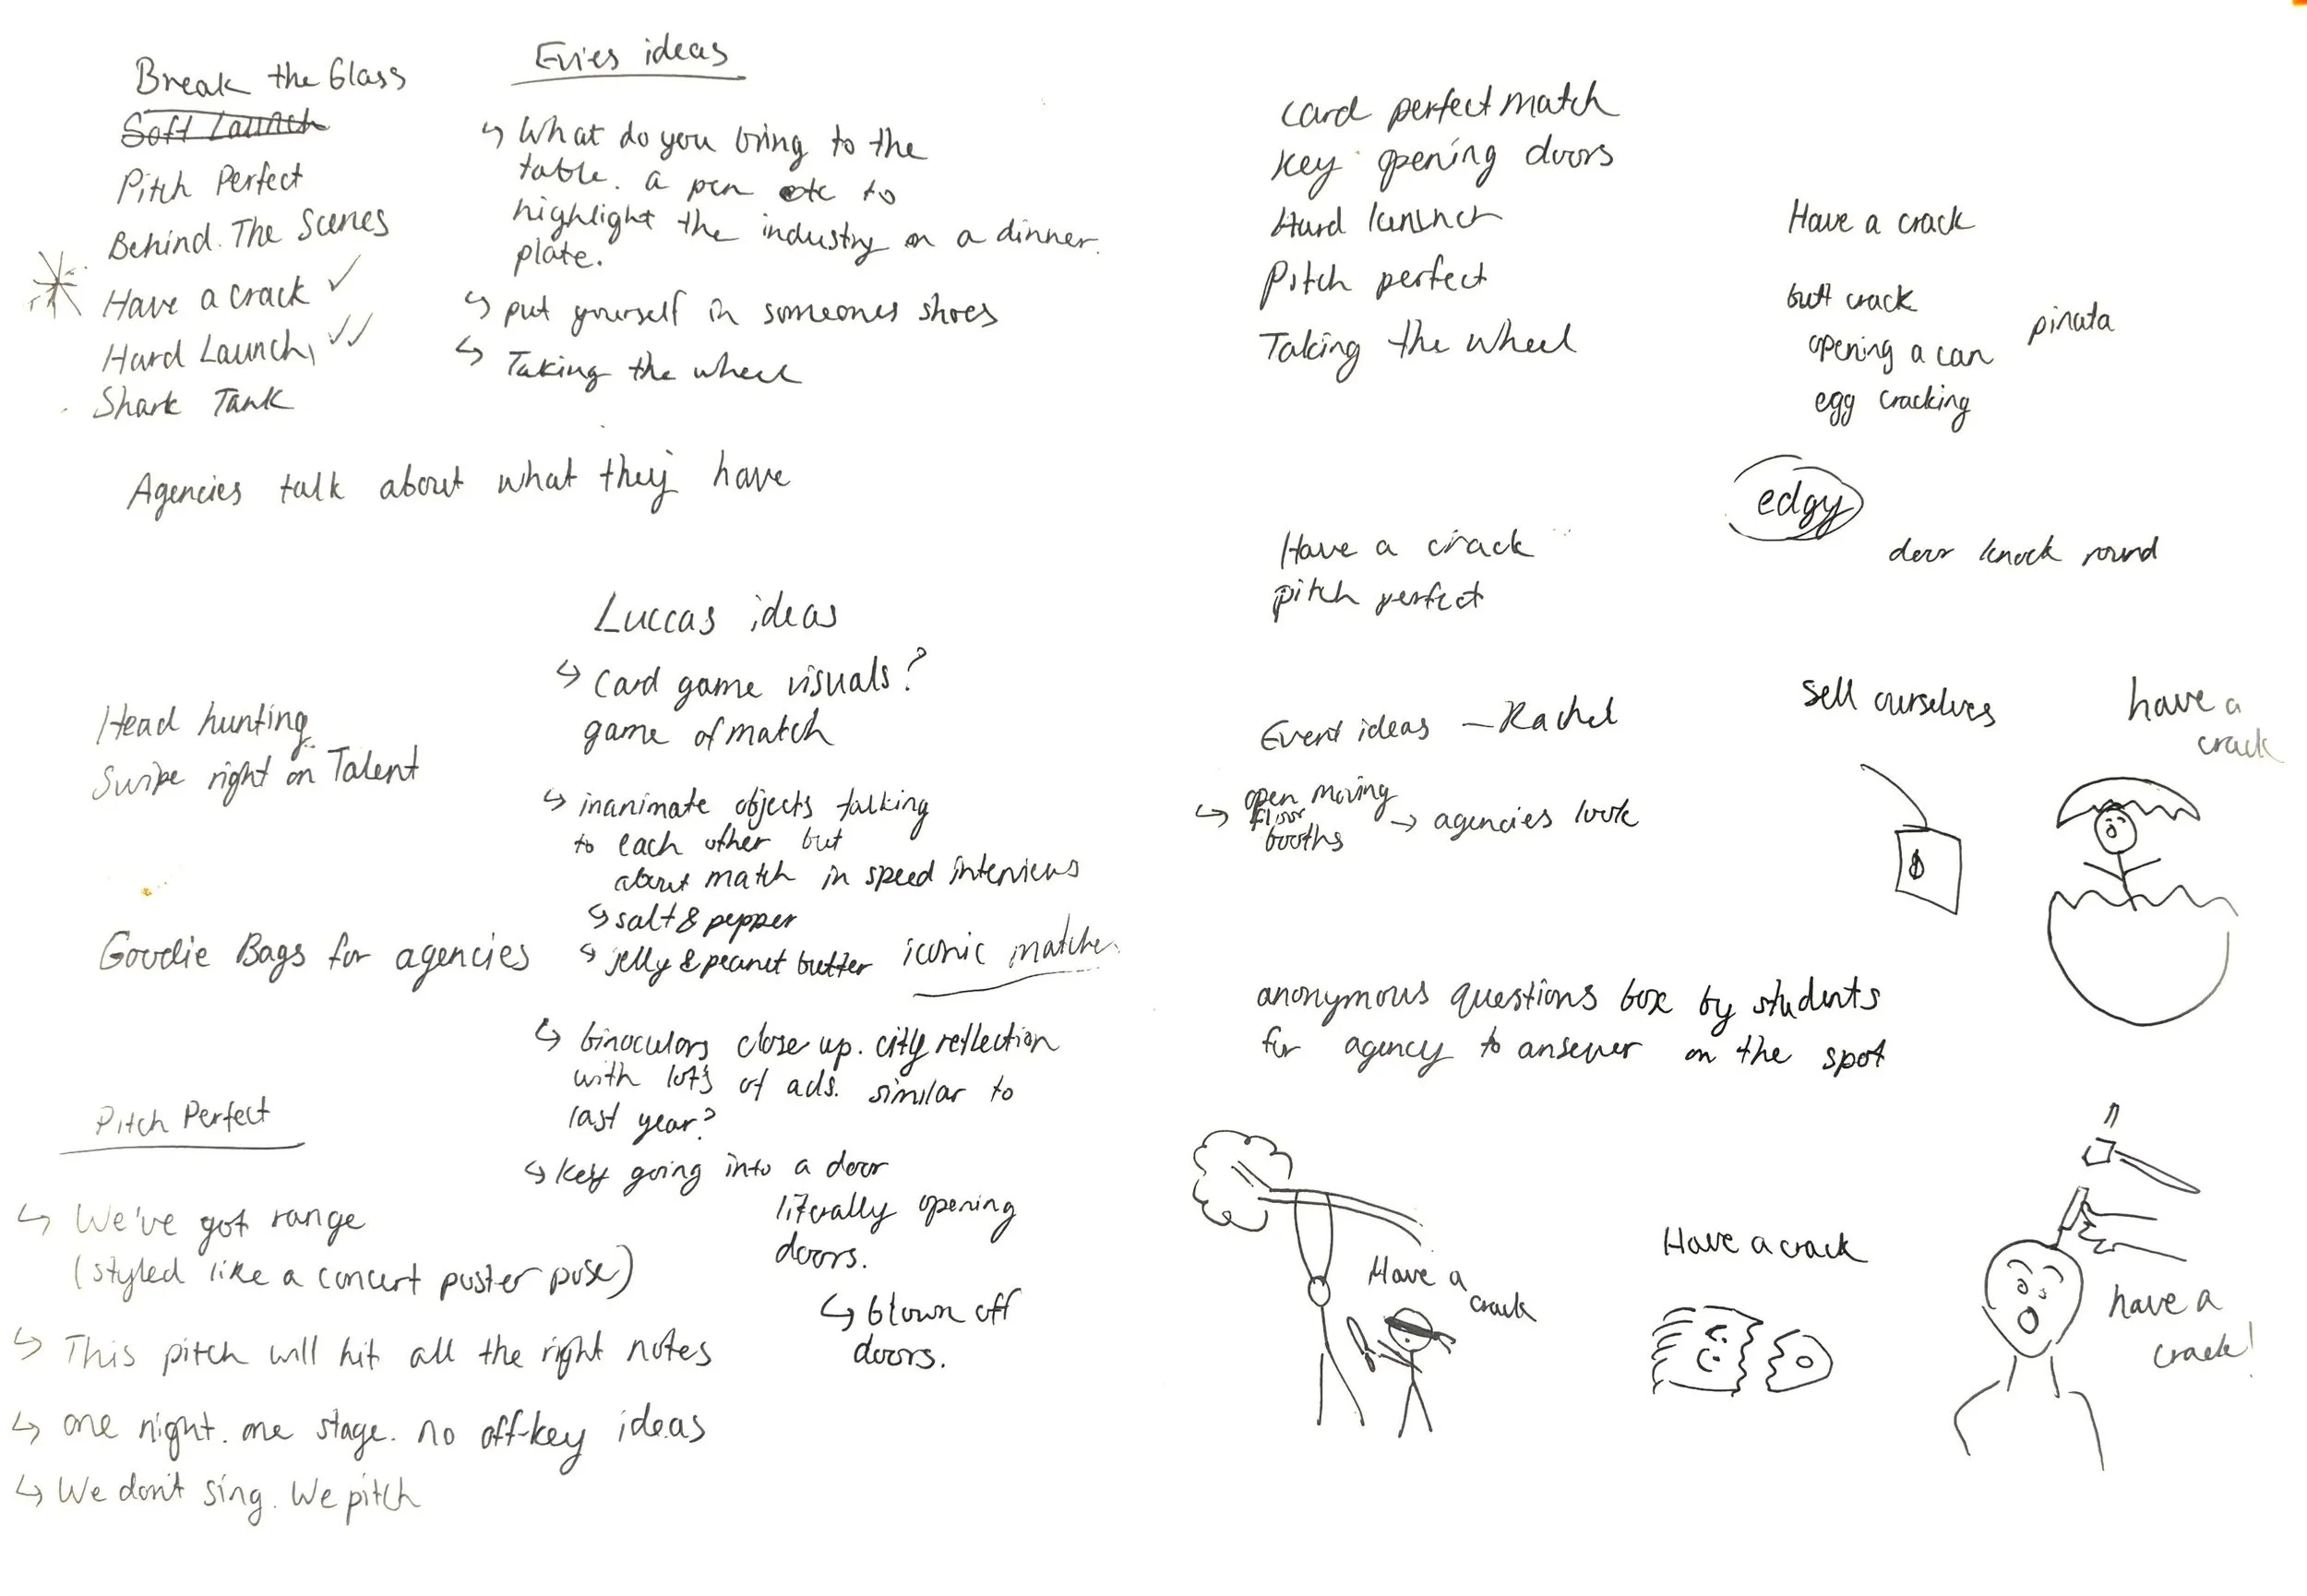 Break the Glass
Soft Launch
Pitch Perfect
Behind The Scenes
Have a crack ✓
Hard Launch, ✓✓
Shark Tank
Evies ideas
↳ What do you bring to the
table. a pen etc to
highlight the industry on a dinner
plate.
↳ put yourself in someones shoes
↳ Taking the wheel
Agencies talk about what they have
Head hunting
Swipe right on Talent
Goodie Bags for agencies
Luccas ideas
↳ Card game visuals?
game of match
↳ inanimate objects talking
to each other but
about match in speed interviews
↳ salt & pepper
↳ jelly & peanut butter iconic matche
↳ binoculors close up. city reflection
with lot's of ads. similar to
last year?
↳ key going into a door
literally opening
doors.
↳ blown off
doors.
Pitch Perfect
↳ We've got range
(styled like a concert poster pose)
↳ This pitch will hit all the right notes
↳ one night. one stage. no off-key ideas
↳ We don't sing. We pitch
card perfect match
key opening doors
Hard launch
Pitch perfect
Taking the wheel
Have a crack
butt crack
pinata
opening a can
egg cracking
edgy
door knock round
Have a crack
pitch perfect
Event ideas — Rachel
↳ open moving
floor
booths
→ agencies look
sell ourselves
$
have a
crack
anonymous questions box by students
for agency to answer on the spot
Have a
crack
Have a crack
have a
crack!